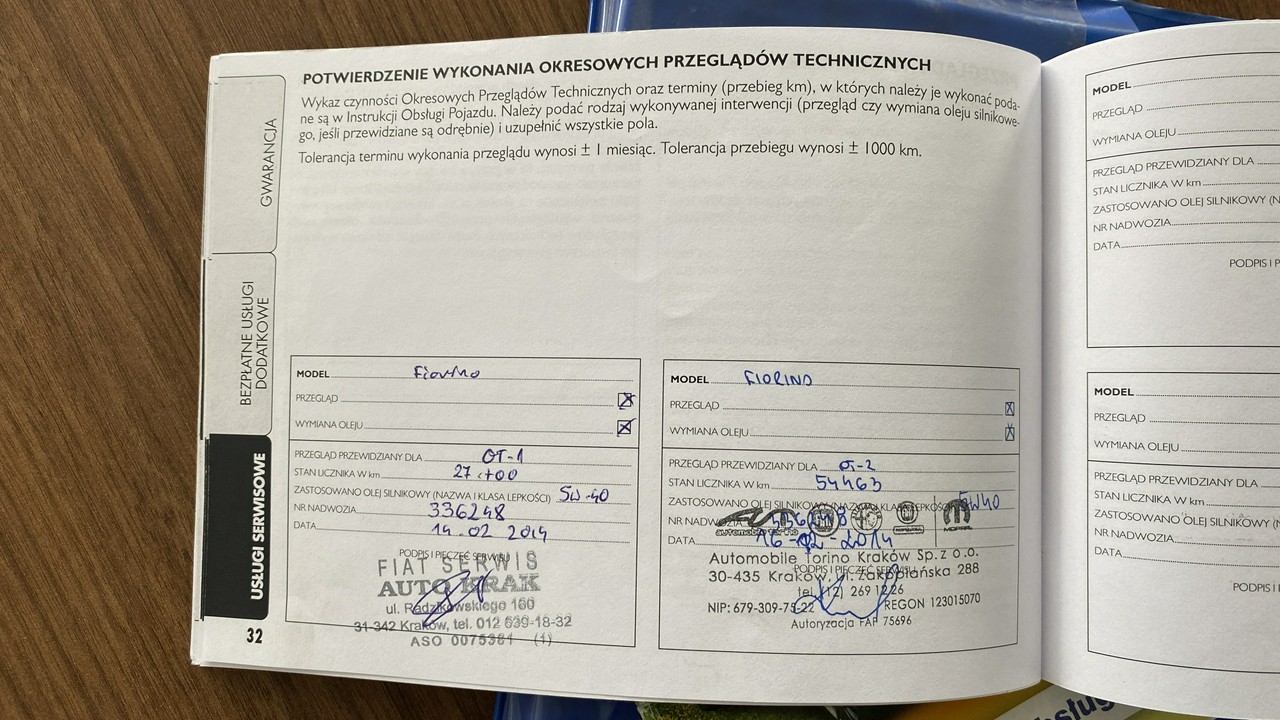 POTWIERDZENIE WYKONANIA OKRESOWYCH PRZEGLĄDÓW TECHNICZNYCH
Wykaz czynności Okresowych Przeglądów Technicznych oraz terminy (przebieg km), w których należy je wykonać poda-
ne są w Instrukcji Obsługi Pojazdu. Należy podać rodzaj wykonywanej interwencji (przegląd czy wymiana oleju silnikowe-
go, jeśli przewidziane są odrębnie) i uzupełnić wszystkie pola.
Tolerancja terminu wykonania przeglądu wynosi ± 1 miesiąc. Tolerancja przebiegu wynosi ± 1000 km.
GWARANCJA
BEZPŁATNE USŁUGI
DODATKOWE
USŁUGI SERWISOWE
32
MODEL Fiorino
PRZEGLĄD
WYMIANA OLEJU
PRZEGLĄD PRZEWIDZIANY DLA OT-1
STAN LICZNIKA W km
ZASTOSOWANO OLEJ SILNIKOWY (NAZWA I KLASA LEPKOŚCI) 5W-40
NR NADWOZIA 336248
DATA 14.02 2014
PODPIS I PIECZĘĆ SERWISU
FIAT SERWIS
AUTO KRAK
ul. Radzikowskiego 160
31-342 Kraków, tel. 012 639-18-32
ASO 0075381 (1)
MODEL FIORINO
PRZEGLĄD
WYMIANA OLEJU
PRZEGLĄD PRZEWIDZIANY DLA OT-2
STAN LICZNIKA W km 54463
ZASTOSOWANO OLEJ SILNIKOWY (NAZWA I KLASA LEPKOŚCI) 5W40
NR NADWOZIA
DATA 2014
MOPAR
Automobile Torino Kraków Sp. z o.o.
30-435 Kraków, ul. Zakopiańska 288
PODPIS I PIECZĘĆ SERWISU
tel. (12) 269 12 26
NIP: 679-309-75-22 REGON 123015070
Autoryzacja FAP 75696
MODEL
PRZEGLĄD
WYMIANA OLEJU
PRZEGLĄD PRZEWIDZIANY DLA
STAN LICZNIKA W km
ZASTOSOWANO OLEJ SILNIKOWY (N
NR NADWOZIA
DATA
PODPIS I P
MODEL
PRZEGLĄD
WYMIANA OLEJU
PRZEGLĄD PRZEWIDZIANY DLA
STAN LICZNIKA W km
ZASTOSOWANO OLEJ SILNIKOWY (
NR NADWOZIA
DATA
PODPIS I